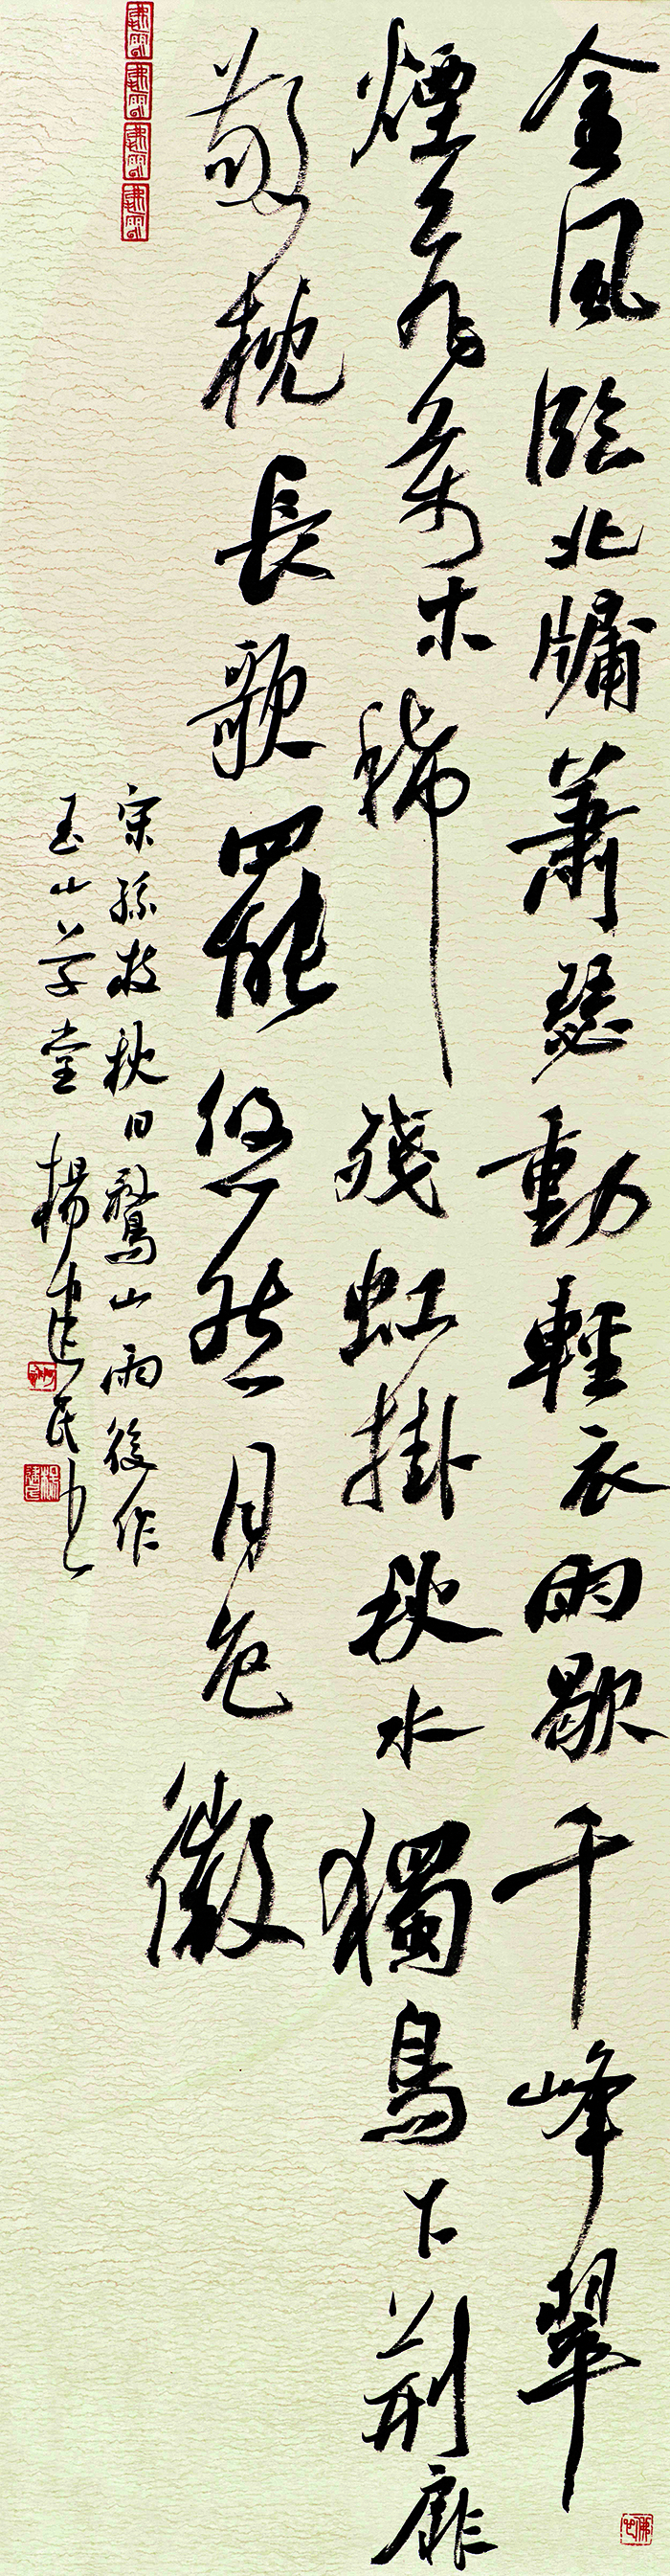 金風臨北牖蕭瑟動輕衣雨歇千峰翠
煙萬木稀殘虹掛秋水獨鳥下荊扉
枕長歌罷悠然月色微
宋孫枝秋日鷲山雨後作
玉山草堂楊建民書